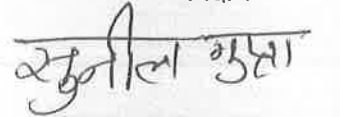 सुनील गुप्ता